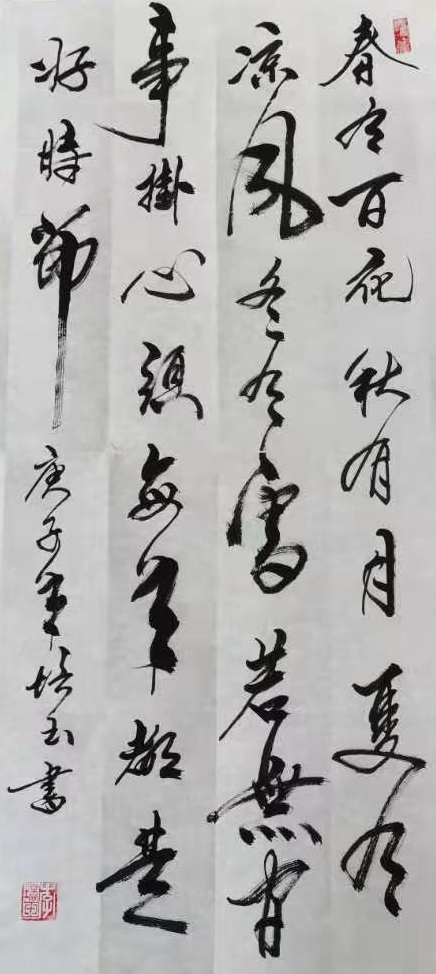 春有百花秋有月夏有
凉風冬有雪若無闲
事掛心頭每年都是
好時節
庚子年培玉書